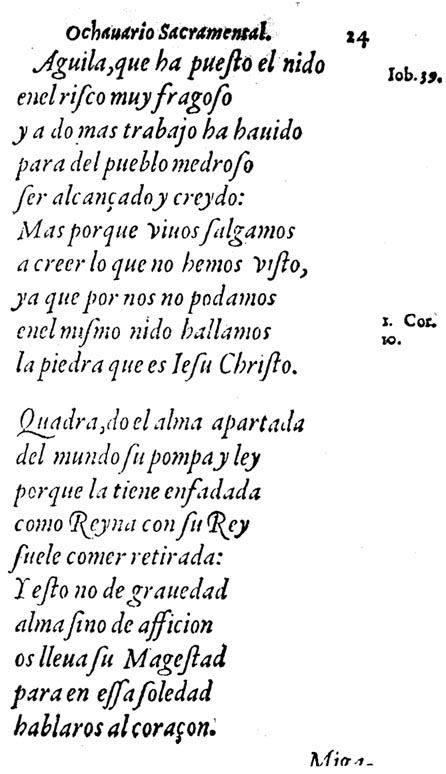 Ochauario Sacramental. 24
Aguila, que ha pueſto el nido
Iob. 39.
enel riſco muy fragoſo
y a do mas trabajo ha hauido
para del pueblo medroſo
ſer alcançado y creydo:
Mas porque viuos ſalgamos
a creer lo que no hemos viſto,
ya que por nos no podamos
enel miſmo nido hallamos
1. Cor.
10.
la piedra que es Ieſu Chriſto.
Quadra, do el alma apartada
del mundo ſu pompa y ley
porque la tiene enfadada
como Reyna con ſu Rey
ſuele comer retirada:
Y eſto no de grauedad
alma ſino de afficion
os lleua ſu Mageſtad
para en eſſa ſoledad
hablaros al coraçon.